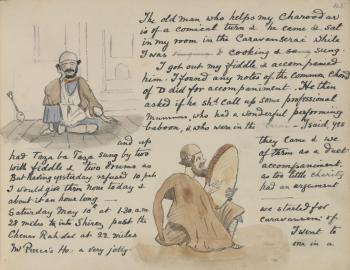 165
The old man who helps my Charoodar
is of a comical turn & he came & sat
in my room in the Caravanserai while
I was cooking & sung.
I got out my fiddle & accompanied
him. I found any notes of the common chord
of D did for accompaniment. He then
asked if he shd. call up some professional
who had a wonderful performing
baboon, & who were in the I said yes
and up they came & we
had Taza ba Taza sung by two of them as a duet
with fiddle & two drums as accompaniment.
But having yesterday refused 10 as too little charity
I would give them none today & had an argument
about it an hour long
Saturday May 10th at 1.30 a.m. we started for
28 miles to past the caravanserai of
Chenar Rahdar at 22 miles I went to
Mr Ho. a very jolly one in a